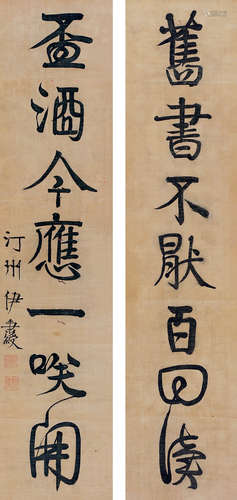 舊書不厭百回讀
盃酒今應一唉開
汀州伊秉綬